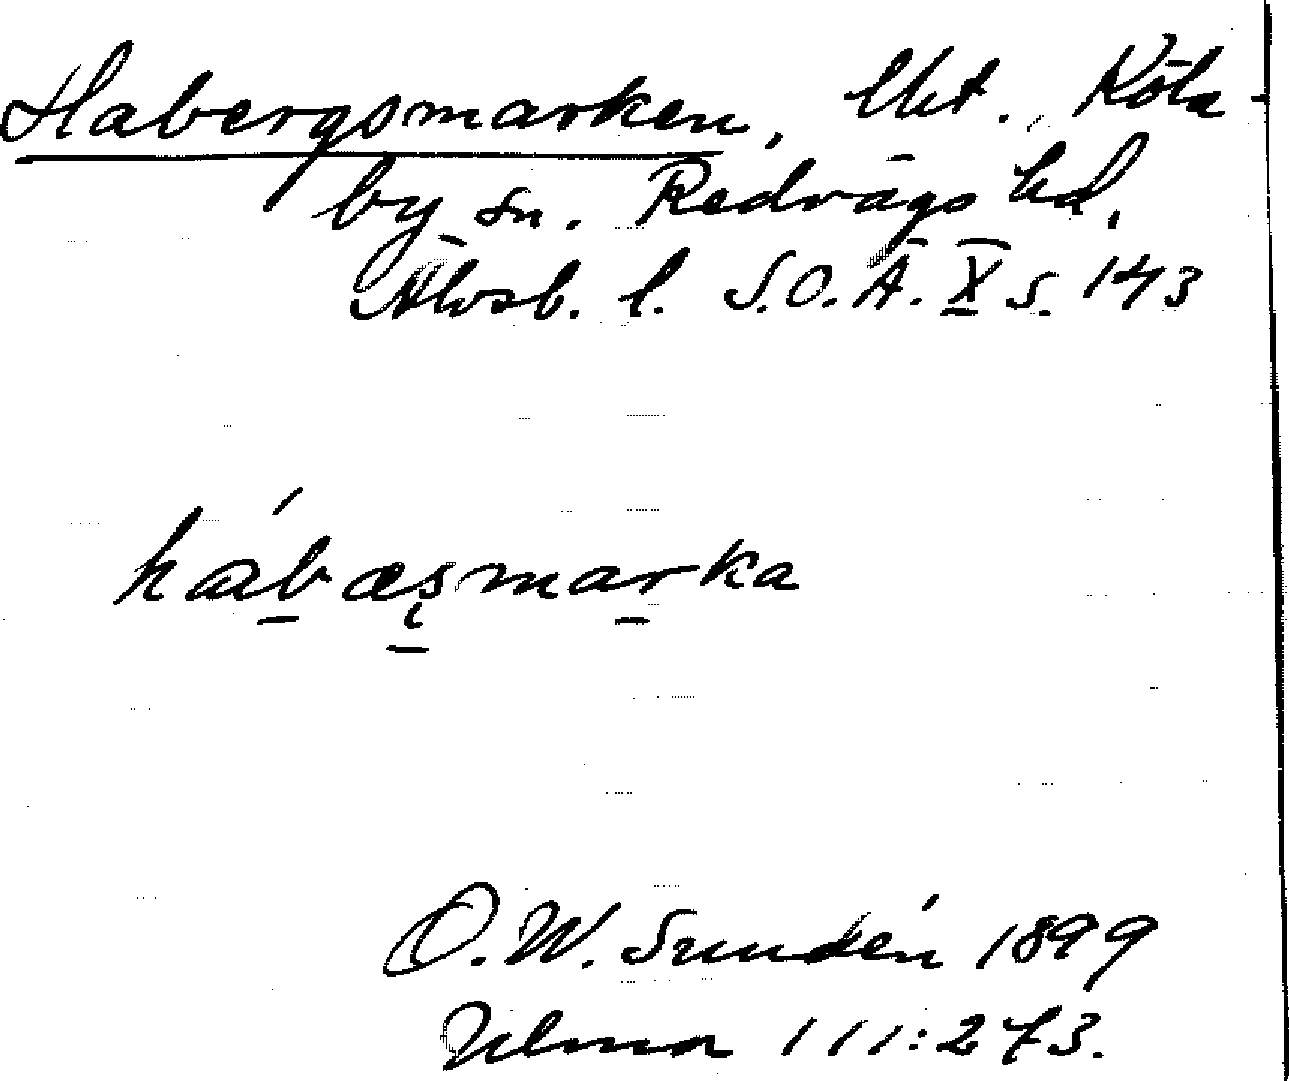 Habergsmarken, lht. Köla-
by sn. Redvägs hd,
Älvsb. l. S.O.Ä. X s. 143
hábæsmarka
O. W. Sundén 1899
111:273.